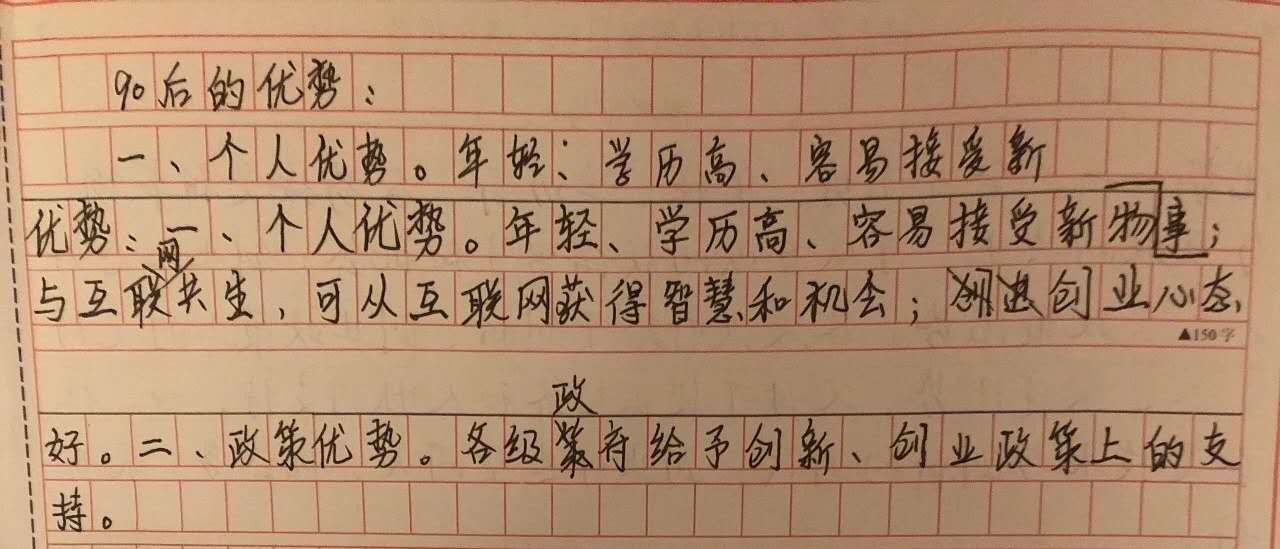 90后的优势：
一、个人优势。年轻、学历高、容易接受新
优势：一、个人优势。年轻、学历高、容易接受新事物；
与互联网共生，可从互联网获得智慧和机会；创业心态
▲150字
好。二、政策优势。各级政府给予创新、创业政策上的支
持。